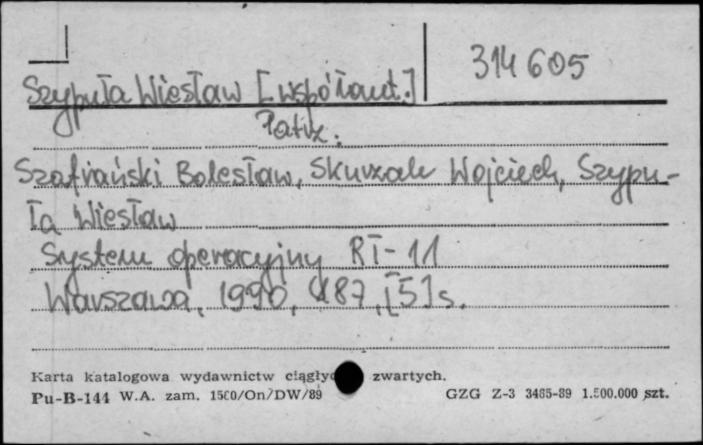 314605
Szypuła Wiesław [współaut.]
Patrz:
Szafrański Bolesław, Skurzak Wojciech, Szypu-
ła Wiesław
System operacyjny RT-11
Warszawa, 1990, 187, [5] s.
Karta katalogowa wydawnictw ciągły zwartych.
Pu-B-144 W.A. zam. 1500/On/DW/89 GZG Z-3 3465-89 1.500.000 szt.